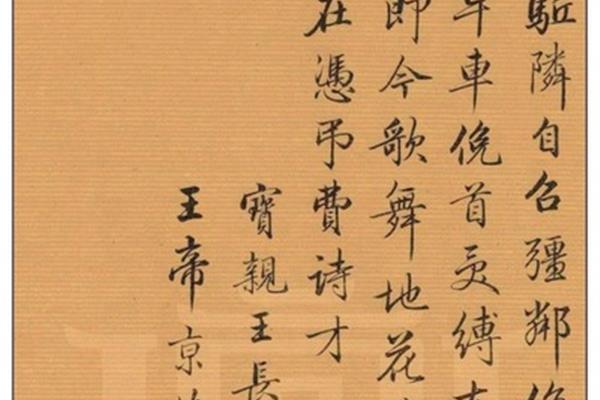 隣自召彊鄰
車俛首受縛
即今歌舞地花
在憑弔費詩才
寶親王長
王帝京